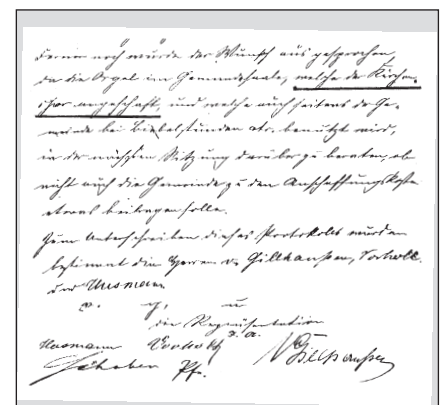 Ferner noch wurde der Wunsch ausgesprochen,
da die Orgel im Gemeindesaale, welche der Kirchen-
chor angeschafft, und welche auch seitens der Ge-
meinde bei Bibelstunden etc. benutzt wird,
in der nächsten Sitzung darüber zu beraten, ob
nicht auch die Gemeinde zu den Anschaffungskosten
etwas beitragen solle.
Zum Unterschreiben dieses Protokolls wurden
bestimmt die Herren v. Gillhaussen, Vorholt
und Husmann
v. g. u.
die Repräsentation
Husmann Vorholt v. Gillhaussen
Pfr.